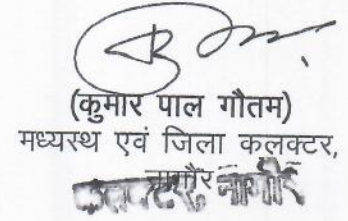 (कुमार पाल गौतम)
मध्यस्थ एवं जिला कलक्टर,
नागौर
कलक्टर, नागौर